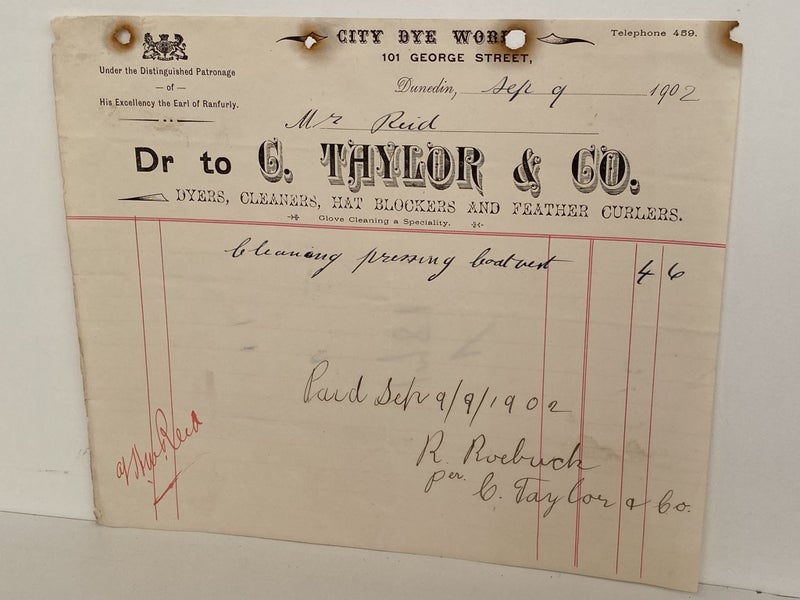 CITY DYE WOR
101 GEORGE STREET,
Telephone 459.
Under the Distinguished Patronage
— of —
His Excellency the Earl of Ranfurly.
Dunedin, Sep 9 1902
Mr Reid
Dr to C. TAYLOR & CO.
DYERS, CLEANERS, HAT BLOCKERS AND FEATHER CURLERS.
Glove Cleaning a Speciality.
Cleaning pressing 4 6
Paid Sep 9/9/1902
R. Roebuck
per C. Taylor & Co.
Reid